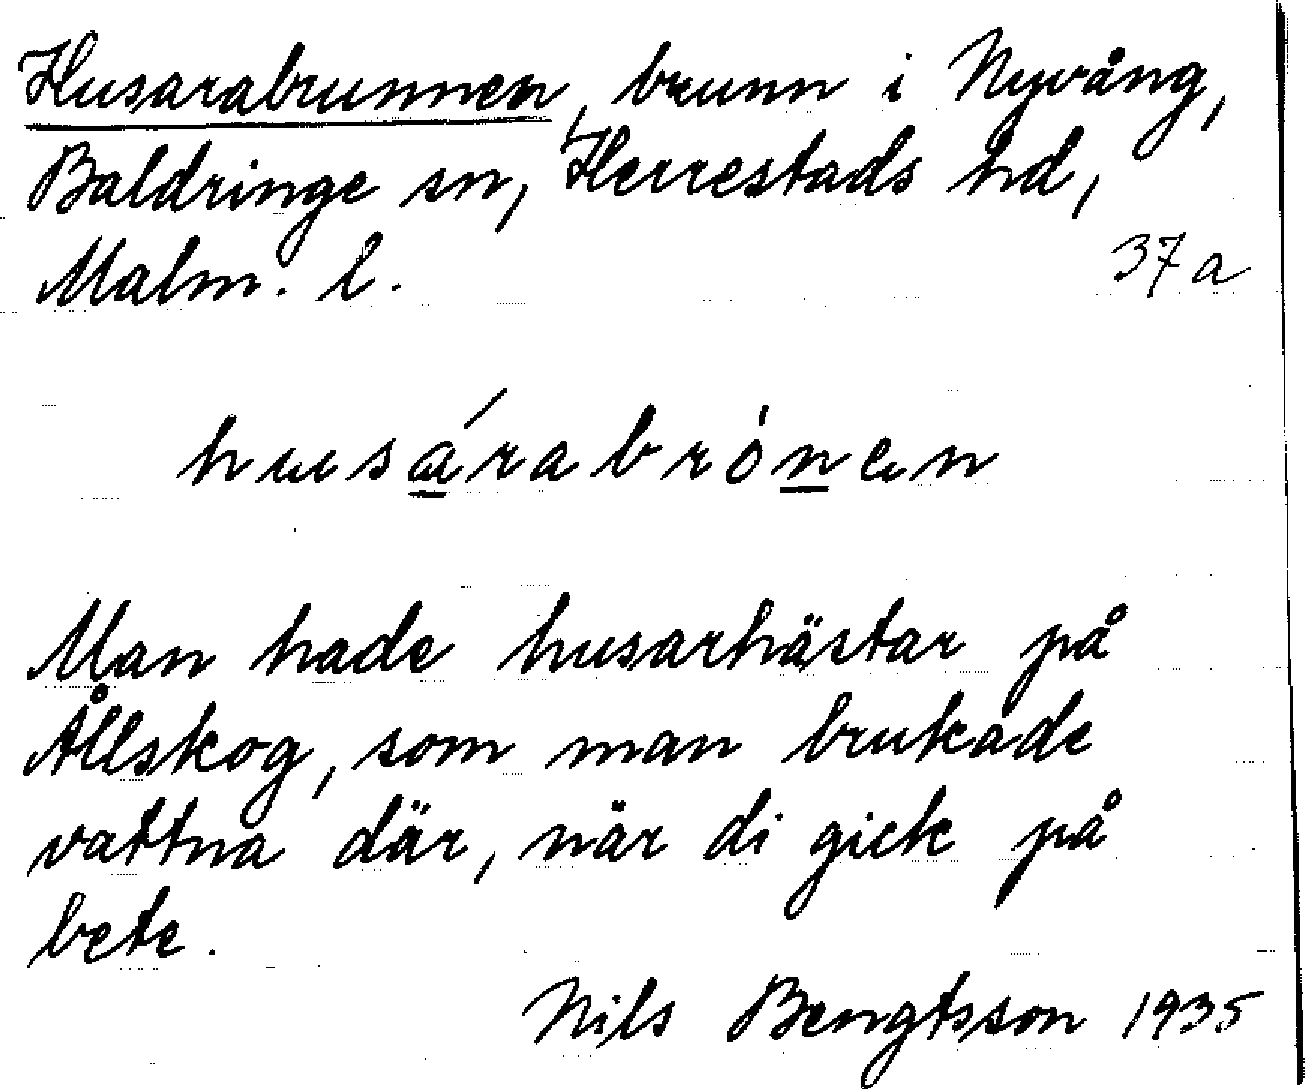 Husarabrunnen, brunn i Nyvång,
Baldringe sn, Herrestads hd,
Malm. l.
37a
husárabrónen
Man hade husarhästar på
Ållskog, som man brukade
vattna där, när di gick på
bete.
Nils Bengtsson 1935